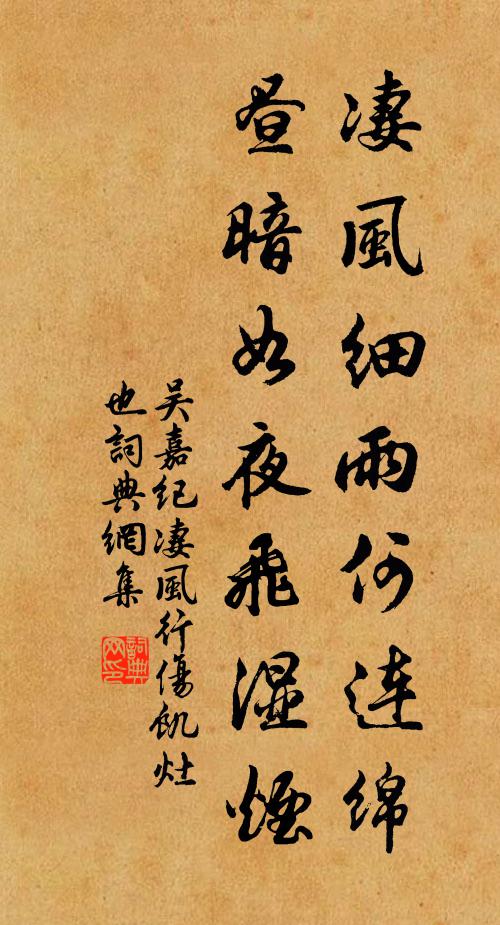 凄風細雨何連綿
昼暗如夜飛濕煙
吴嘉纪凄風行傷飢灶
也詞典網集
詞典網印